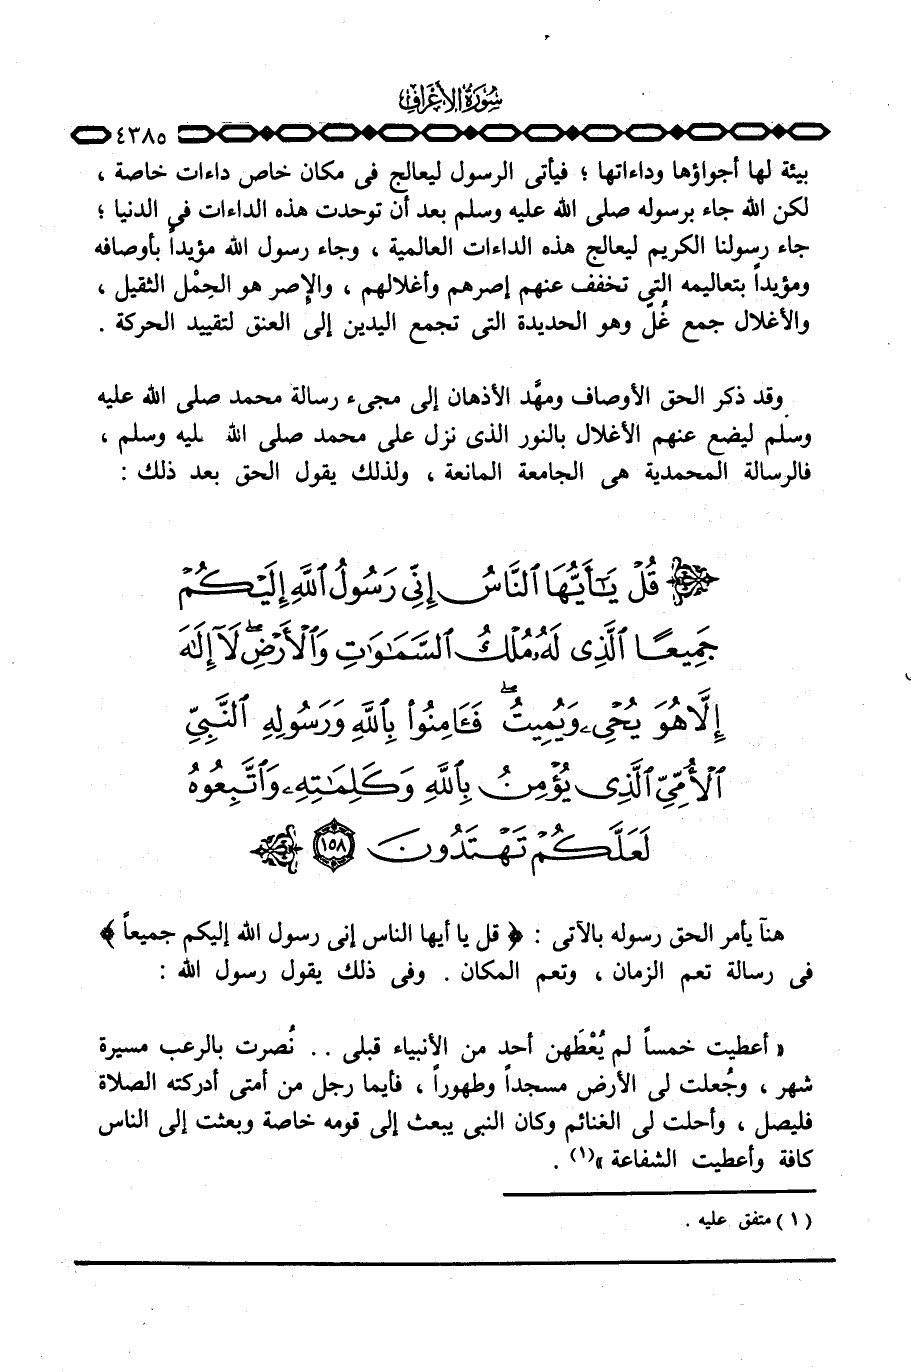 سُورَةُ الأَعْرَافِ
٤٣٨٥
بيئة لها أجواؤها وداءاتها ؛ فيأتى الرسول ليعالج فى مكان خاص داءات خاصة ،
لكن الله جاء برسوله صلى الله عليه وسلم بعد أن توحدت هذه الداءات في الدنيا ؛
جاء رسولنا الكريم ليعالج هذه الداءات العالمية ، وجاء رسول الله مؤيداً بأوصافه
ومؤيداً بتعاليمه التي تخفف عنهم إصرهم وأغلالهم ، والإصر هو الحِمْل الثقيل ،
والأغلال جمع غُلّ وهو الحديدة التى تجمع اليدين إلى العنق لتقييد الحركة .
وقد ذكر الحق الأوصاف ومهَّد الأذهان إلى مجىء رسالة محمد صلى الله عليه
وسلم ليضع عنهم الأغلال بالنور الذى نزل على محمد صلى الله ليه وسلم ،
فالرسالة المحمدية هى الجامعة المانعة ، ولذلك يقول الحق بعد ذلك :
قُلْ يَٰٓأَيُّهَا ٱلنَّاسُ إِنِّى رَسُولُ ٱللَّهِ إِلَيْكُمْ
جَمِيعًا ٱلَّذِى لَهُۥ مُلْكُ ٱلسَّمَٰوَٰتِ وَٱلْأَرْضِۖ لَآ إِلَٰهَ
إِلَّا هُوَ يُحْىِۦ وَيُمِيتُۖ فَـَٔامِنُوا۟ بِٱللَّهِ وَرَسُولِهِ ٱلنَّبِىِّ
ٱلْأُمِّىِّ ٱلَّذِى يُؤْمِنُ بِٱللَّهِ وَكَلِمَٰتِهِۦ وَٱتَّبِعُوهُ
لَعَلَّكُمْ تَهْتَدُونَ ١٥٨
هنا يأمر الحق رسوله بالآتى : ﴿ قل يا أيها الناس إنى رسول الله إليكم جميعاً ﴾
فى رسالة تعم الزمان ، وتعم المكان . وفى ذلك يقول رسول الله :
« أعطيت خمساً لم يُعْطَهن أحد من الأنبياء قبلى .. نُصرت بالرعب مسيرة
شهر ، وجُعلت لى الأرض مسجداً وطهوراً ، فأيما رجل من أمتى أدركته الصلاة
فليصل ، وأحلت لى الغنائم وكان النبى يبعث إلى قومه خاصة وبعثت إلى الناس
كافة وأعطيت الشفاعة »(١) .
(١) متفق عليه .